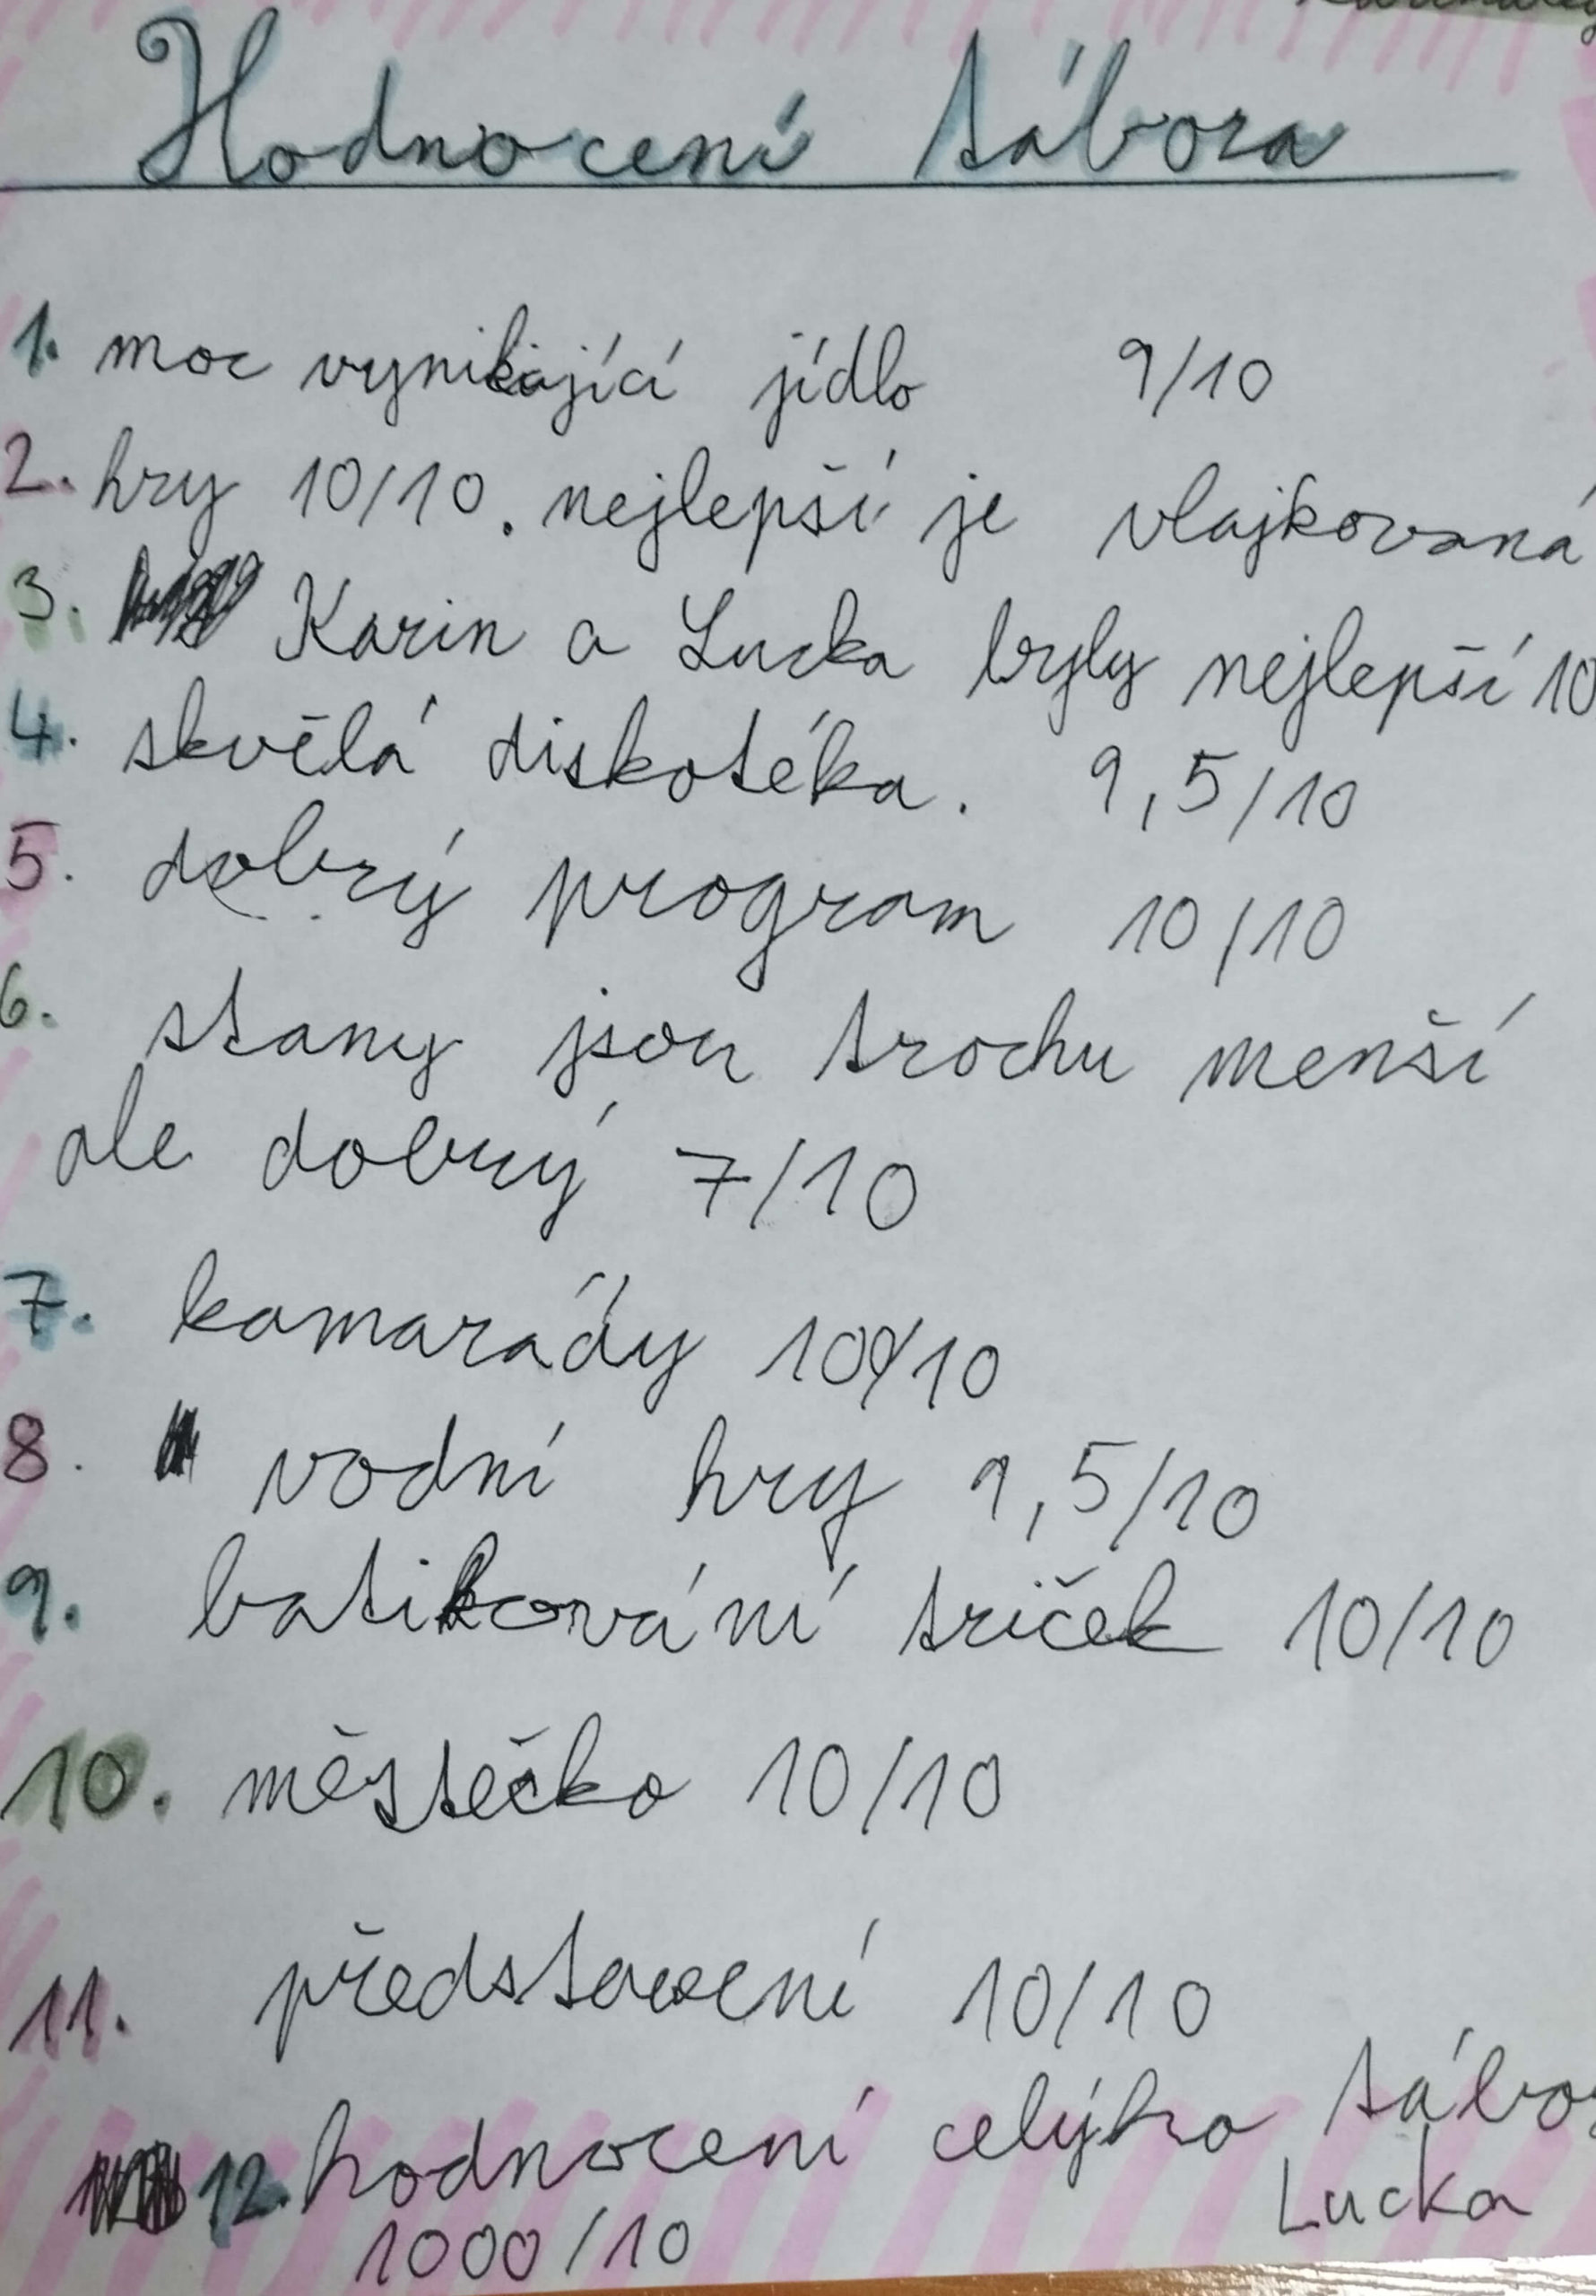 Hodnocení tábora
1. moc vynikající jídlo 9/10
2. hry 10/10. nejlepší je vlajkovaná
3. Karin a Lucka byly nejlepší 10
4. skvělá diskotéka. 9,5/10
5. dobrý program 10/10
6. stany jsou trochu menší
ale dobrý 7/10
7. kamarády 10/10
8. vodní hry 9,5/10
9. batikování triček 10/10
10. městečko 10/10
11. představení 10/10
12. hodnocení celýho tábor
1000/10 Lucka